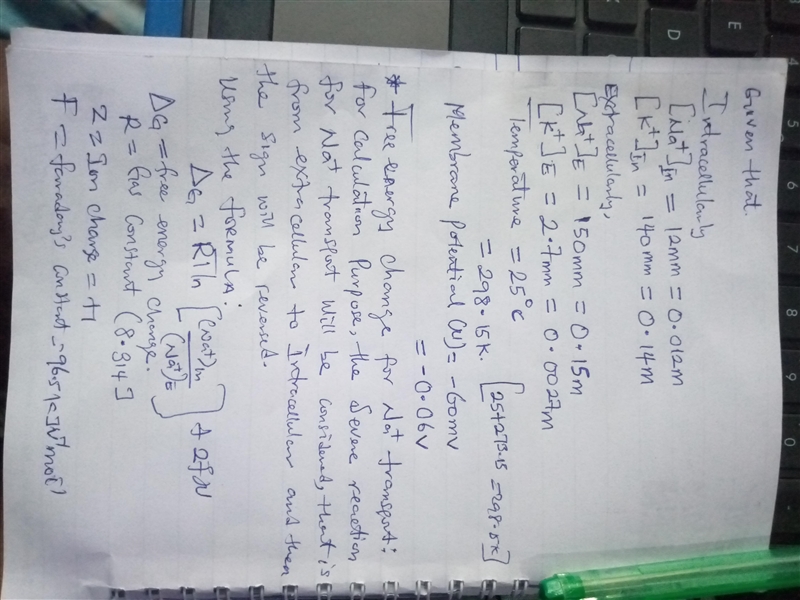 Given that.
Intracellularly
[Na+]In = 12mm = 0.012M
[K+]In = 140mm = 0.14M
Extracellularly,
[Na+]E = 150mm = 0.15M
[K+]E = 2.7mm = 0.0027M
Temperature = 25°C
= 298.15K. [25+273.15 = 298.15K]
Membrane potential (V) = -60mV
= -0.06V
* Free energy change for Na+ transport:
for calculation purpose, the Severe reaction
for Na+ transport will be considered, that is
from extracellular to Intracellular and then
the sign will be reversed.
Using the formula:
ΔG = RTln [(Na+)In / (Na+)E] + ZFΔV
ΔG = free energy change.
R = Gas constant (8.314J
Z = Ion charge = +1
F = faraday's constant = 96.5KJV⁻¹mol⁻¹